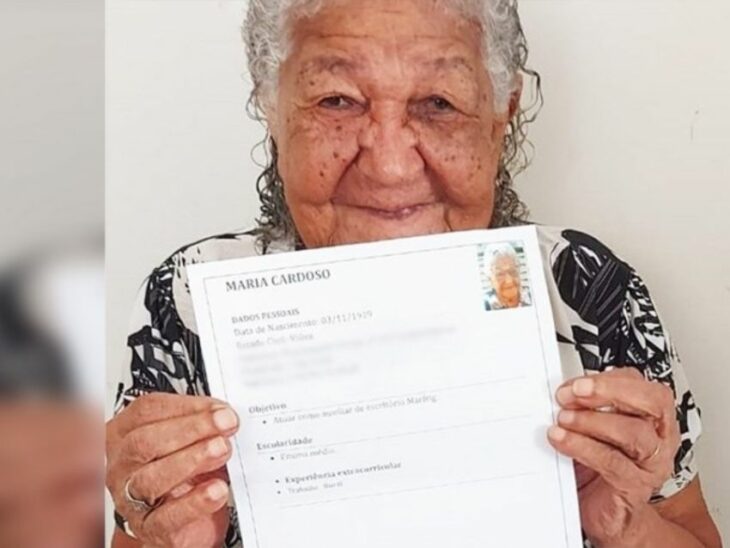 MARIA CARDOSO
DADOS PESSOAIS
Data de Nascimento: 03/11/1919
Estado Civil: Viúva
Objetivo
• Atuar como auxiliar de escritório
Escolaridade
• Ensino médio
• Experiência extracurricular
• Trabalho